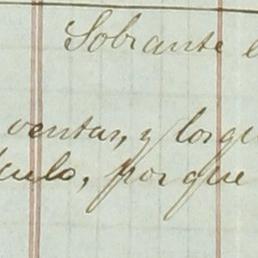 Sobrante e
ventas, y los q
culo, por que